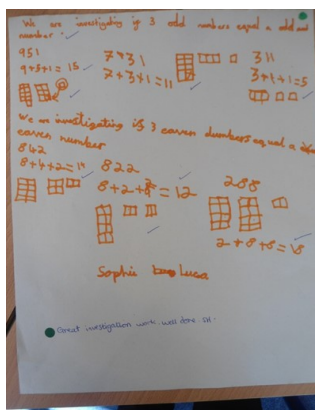 We are investigating if 3 odd numbers equal a odd
number.
951
9+5+1=15
7+31
7+3+1=11
311
3+1+1=5
We are investigating if 3 eaven numbers equal a
eaven number
842
8+4+2=14
822
8+2+2=12
288
2+8+8=18
Sophie Luca
Great investigation work. well done